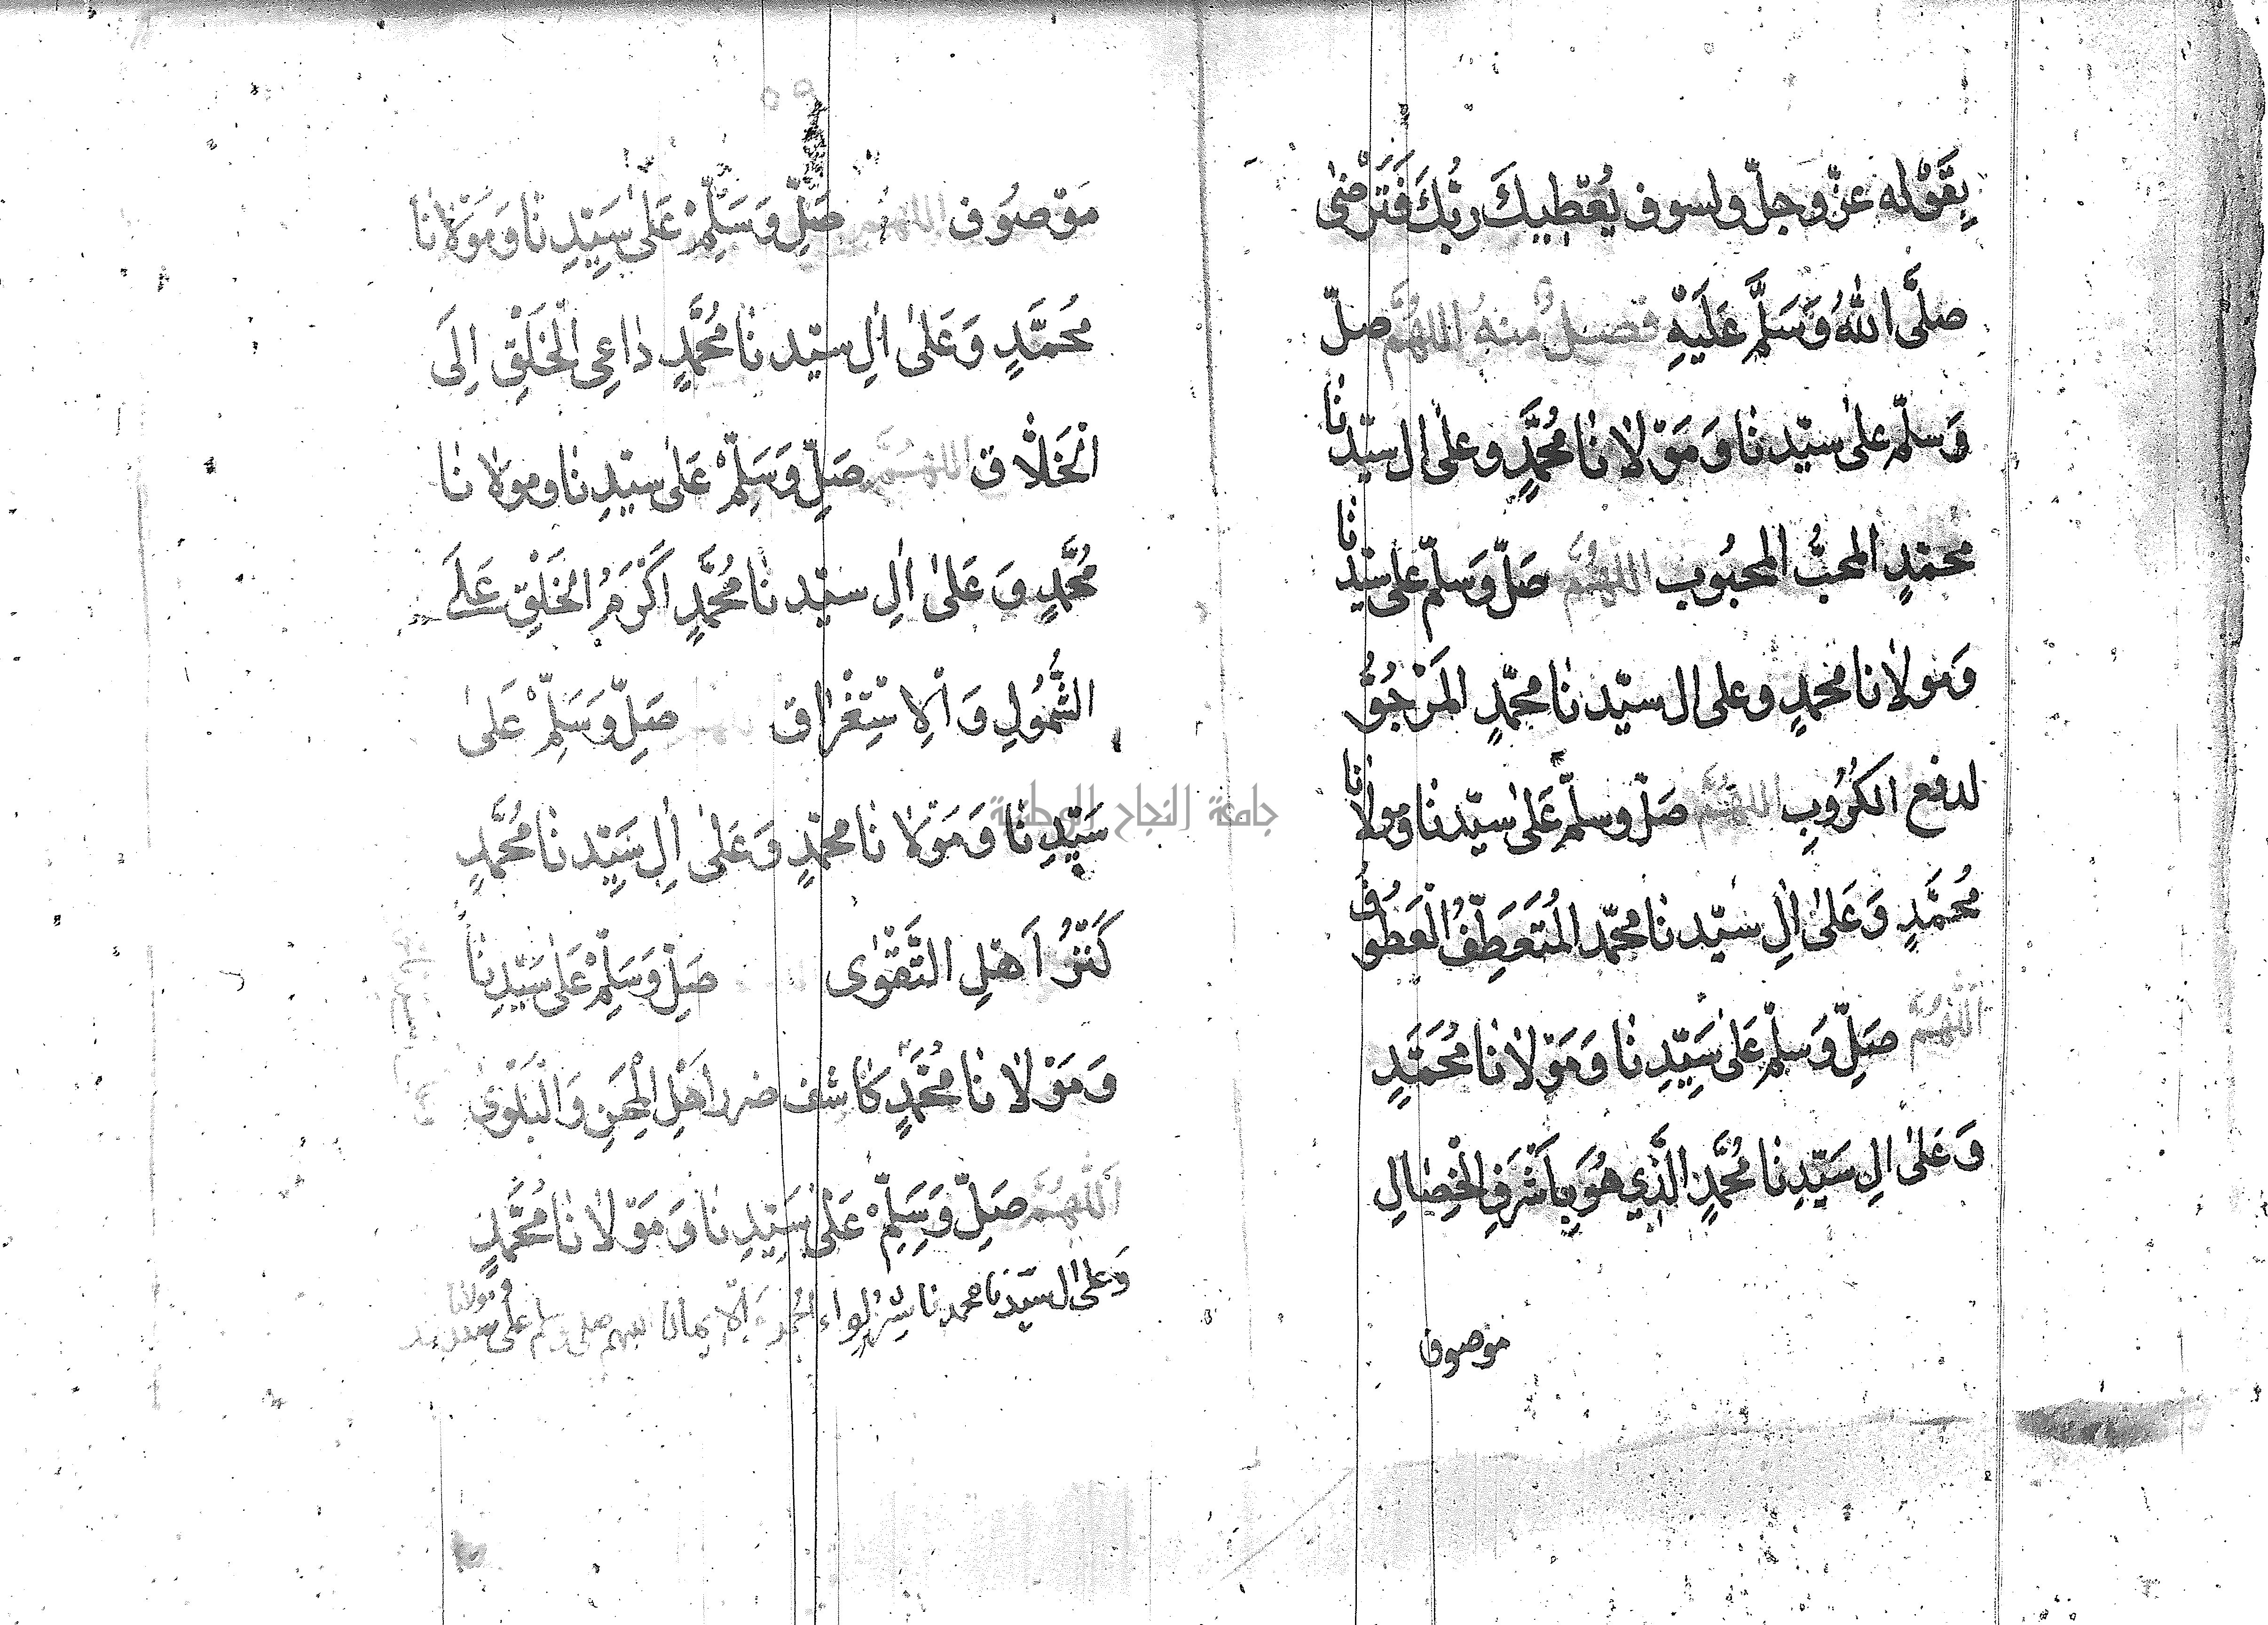 بِقَوْله عزّ وجلّ ولسوف يُعْطِيكَ ربُّكَ فَتَرْضىٰ
صلَّى اللهُ وَسَلَّم عَلَيْهِ فصل منه اللهُمَّ صلّ
وَسلّم علىٰ سيّدنا وَمَوْلانا مُحَمَّدٍ وعلىٰ ال سيّدنا
محمّدٍ المحبُّ المحبُوب اللهُمَّ صَلّ وَسلّم على سيّدنا
وَمولانا محمدٍ وعلى ال سيّدنا محمّدٍ المَرْجُوِّ
لدفع الكُرُوبِ اللهُمَّ صَلّ وسلّم عَلىٰ سيّدنا ومولانا
مُحمَّدٍ وَعَلىٰ اٰلِ سيّدنا محمّد المُتَعَطِّفُ العَطُوفُ
اَللّهُمَّ صَلِّ وَسلّم عَلىٰ سَيِّدِنا وَمَوْلانا مُحَمَّدٍ
وَعَلىٰ الِ سَيِّدِنا مُحَمَّدٍ الَّذِي هُوَ بِاَشْرَفِ الْخِصٰالِ
موصوف
٥٩
مَوْصُوف اللهُمَّ صَلِّ وَسَلِّمْ عَلىٰ سَيِّدِنا وَمَوْلانا
مُحَمَّدٍ وَعَلىٰ اٰلِ سيّدنا مُحَمَّدٍ داعِى الْخَلْقِ اِلَى
الْخَلّاق اللهُمَّ صَلِّ وَسَلِّمْ عَلىٰ سيّدِنا ومولانا
مُحَمَّدٍ وَعَلىٰ اٰلِ سيّدنا مُحَمَّدٍ اَكْرَمُ الْخَلْقِ عَلَى
الشُّمُولِ وَالْاِسْتِغْراق صَلِّ وَسَلِّمْ عَلىٰ
سَيِّدِنا وَمَوْلانا محمّدٍ وَعَلىٰ اٰلِ سَيِّدنا مُحَمَّدٍ
كَنْزُ اَهْلِ التَّقْوٰى صَلِّ وَسَلِّمْ عَلىٰ سَيِّدِنا
وَمَوْلانا مُحَمَّدٍ كاشف ضرر اَهْلِ الْمِحَنِ وَالْبَلْوىٰ
اَللّهُمَّ صَلِّ وَسَلِّمْ عَلىٰ سَيِّدِنا وَمَوْلانا مُحَمَّدٍ
وَعلىٰ ال سيّدنا محمد ناشِرُ لِواءِ الْحَمْدِ وَالْاِيمان اللهم صلى وسلم على سيدنا ومولانا
جامعة النجاح الوطنية